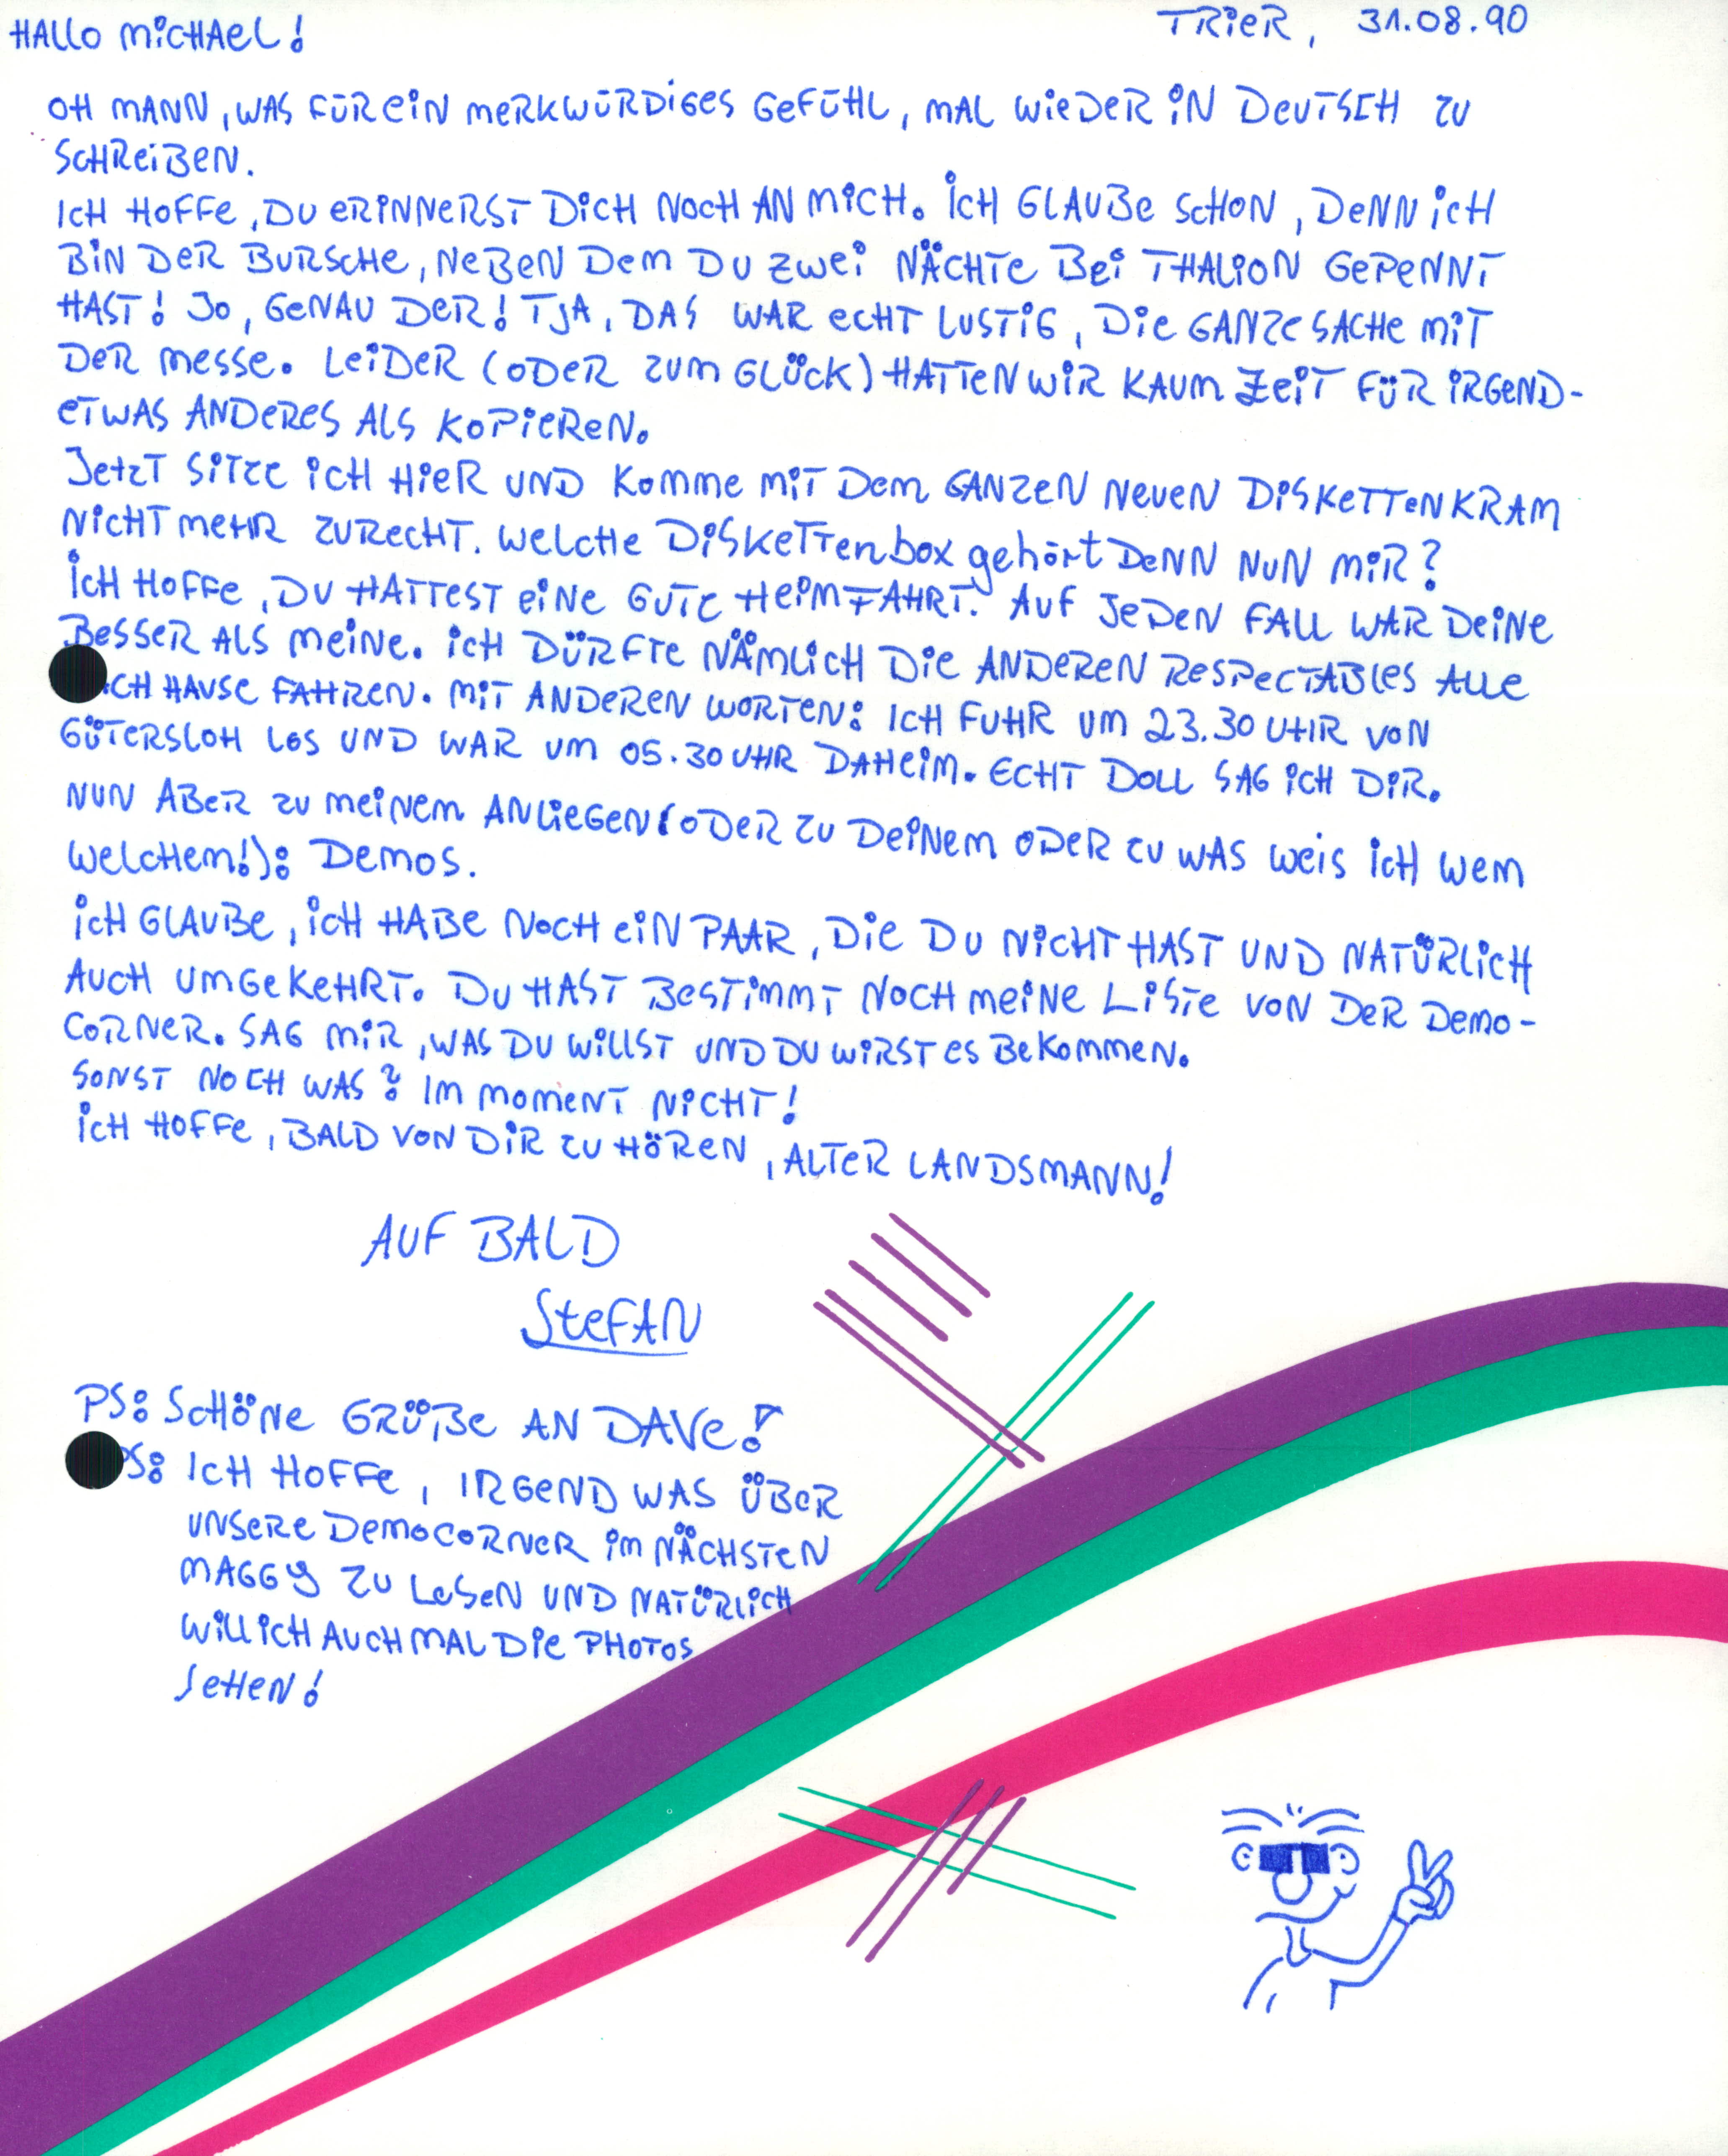 HALLO MiCHAeL!
TRieR, 31.08.90
OH MANN, WAS FÜR eiN MeRKWÜRDiGeS GeFÜHL, MAL WieDeR iN DeUTSCH ZU
SCHReiBeN.
ICH HOFFe, DU eRiNNeRST DiCH NOCH AN MiCH. iCH GLAUBe SCHON, DeNN iCH
BiN DeR BURSCHe, NeBeN DeM DU ZWei NÄCHTe Bei THALiON GePeNNT
HAST! JO, GeNAU DeR! TJA, DAS WAR eCHT LUSTiG, Die GANZe SACHe MiT
DeR Messe. LeiDeR (ODeR ZUM GLÜCK) HATTeN WiR KAUM ZeiT FÜR iRGeND-
eTWAS ANDeReS ALS KOPieReN.
JetzT SiTZe iCH HieR UND Komme MiT DeM GANZeN NeueN DiSKeTTeNKRAM
NiCHT MeHR ZURecHT. Welche DiSKeTTenbox gehört DeNN NUN MiR?
iCH HOFFe, DU HATTeST eiNe GUTe HeiMFAHRT. AUF JeDeN FALL WAR DeiNe
BeSSeR ALS MeiNe. iCH DÜRFTe NÄMLiCH Die ANDeReN ReSPeCTABLeS ALLe
CH HAUSe FAHReN. MiT ANDeReN WORTeN: ICH FUHR UM 23.30 UHR VON
GÜTeRSLOH LOS UND WAR UM 05.30 UHR DAHeiM. eCHT DOLL SAG iCH DiR.
NUN ABeR ZU MeiNeM ANLieGeN (ODeR ZU DeiNeM ODeR ZU WAS WeiS iCH WeM
WeLCHeM!): DeMOS.
iCH GLAUBe, iCH HABe NOCH eiN PAAR, Die DU NiCHT HAST UND NATÜRLiCH
AUCH UMGeKeHRT. DU HAST BeSTiMMT NOCH MeiNe LiSTe VON DeR DeMO-
CORNeR. SAG MiR, WAS DU WiLLST UND DU WiRST eS BeKOMMeN.
SONST NOCH WAS? IM MOMeNT NiCHT!
iCH HOFFe, BALD VON DiR ZU HÖReN, ALTeR LANDSMANN!
AUF BALD
SteFAN
PS: SCHÖNe GRÜße AN DAVe!
PS: ICH HOFFe, IRGeND WAS ÜBeR
UNSeRe DeMOCORNeR iM NÄCHSTeN
MAGGY ZU LeSeN UND NATÜRLiCH
WiLL iCH AUCH MAL Die PHOTOS
SeHeN!